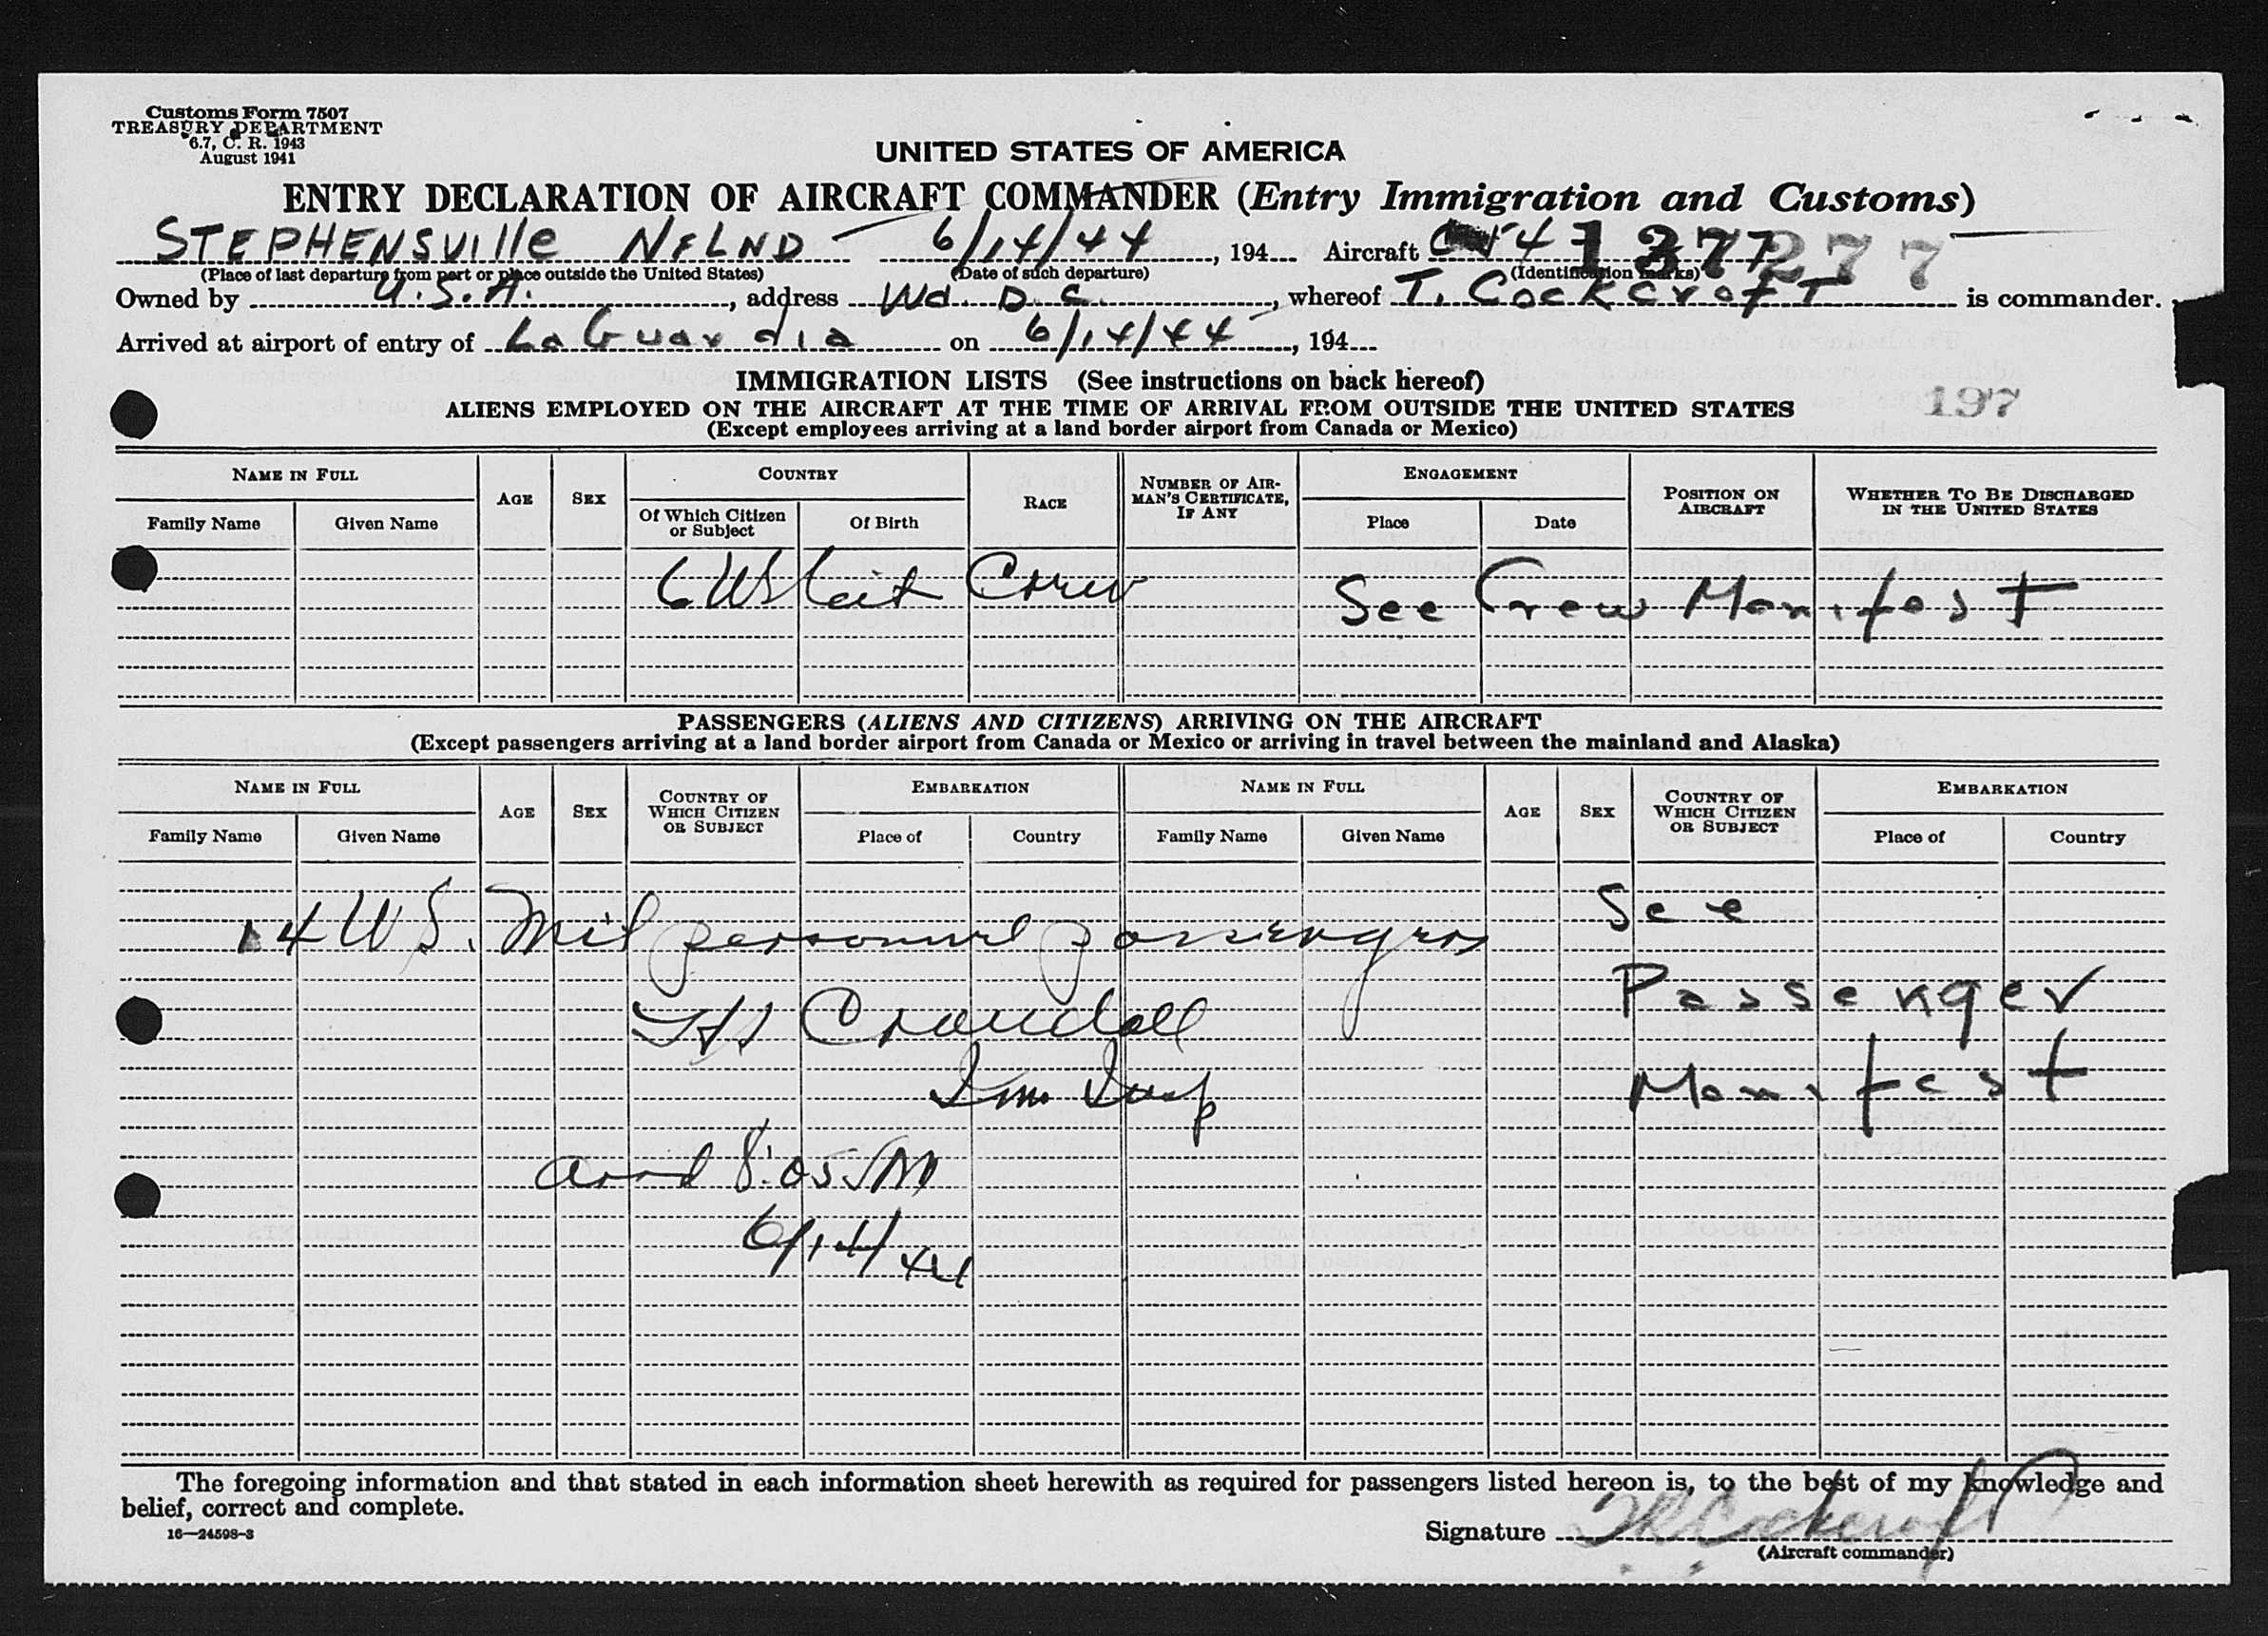 Customs Form 7507
TREASURY DEPARTMENT
6.7, C. R. 1943
August 1941
UNITED STATES OF AMERICA
ENTRY DECLARATION OF AIRCRAFT COMMANDER (Entry Immigration and Customs)
STEPHENSVIlle NFLND 6/14/44, 194 Aircraft 277
(Place of last departure from port or place outside the United States) (Date of such departure) (Identification marks)
Owned by U.S.A., address D C, whereof T. CockcrofT is commander.
Arrived at airport of entry of LaGuardia on 6/14/44, 194
IMMIGRATION LISTS (See instructions on back hereof)
ALIENS EMPLOYED ON THE AIRCRAFT AT THE TIME OF ARRIVAL FROM OUTSIDE THE UNITED STATES
197
(Except employees arriving at a land border airport from Canada or Mexico)
NAME IN FULL AGE SEX COUNTRY RACE NUMBER OF AIRMAN'S CERTIFICATE, IF ANY ENGAGEMENT POSITION ON AIRCRAFT WHETHER TO BE DISCHARGED IN THE UNITED STATES
Family Name Given Name Of Which Citizen or Subject Of Birth Place Date
6 US Cit Crew See Crew Manifest
PASSENGERS (ALIENS AND CITIZENS) ARRIVING ON THE AIRCRAFT
(Except passengers arriving at a land border airport from Canada or Mexico or arriving in travel between the mainland and Alaska)
NAME IN FULL AGE SEX COUNTRY OF WHICH CITIZEN OR SUBJECT EMBARKATION NAME IN FULL AGE SEX COUNTRY OF WHICH CITIZEN OR SUBJECT EMBARKATION
Family Name Given Name Place of Country Family Name Given Name Place of Country
See
14 US. Mil personnel passengers
Passenger
Crandall
Manifest
Imm Insp
arrd 8:05
6/14/44
The foregoing information and that stated in each information sheet herewith as required for passengers listed hereon is, to the best of my knowledge and
belief, correct and complete.
16—24598-3
Signature Cockcroft
(Aircraft commander)